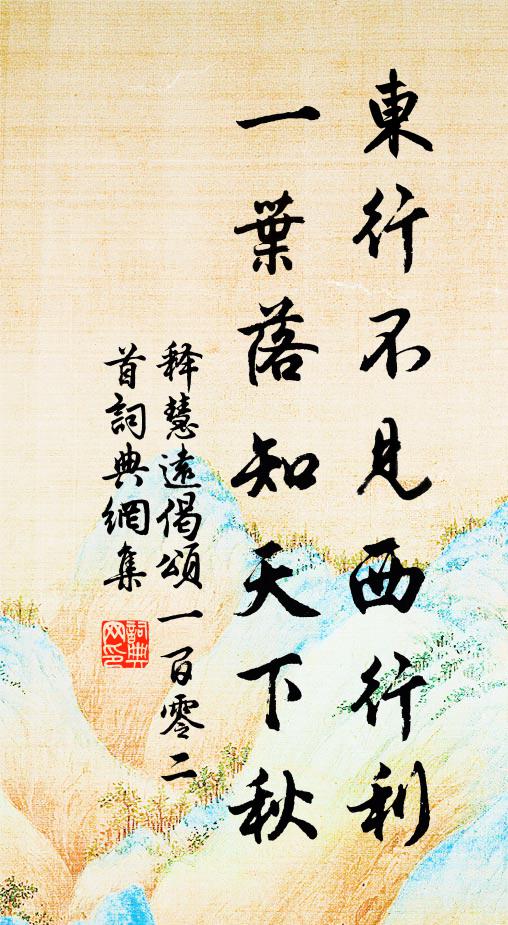 東行不見西行利
一葉落知天下秋
释慧遠偈頌一百零二
首詞典網集
詞典网印